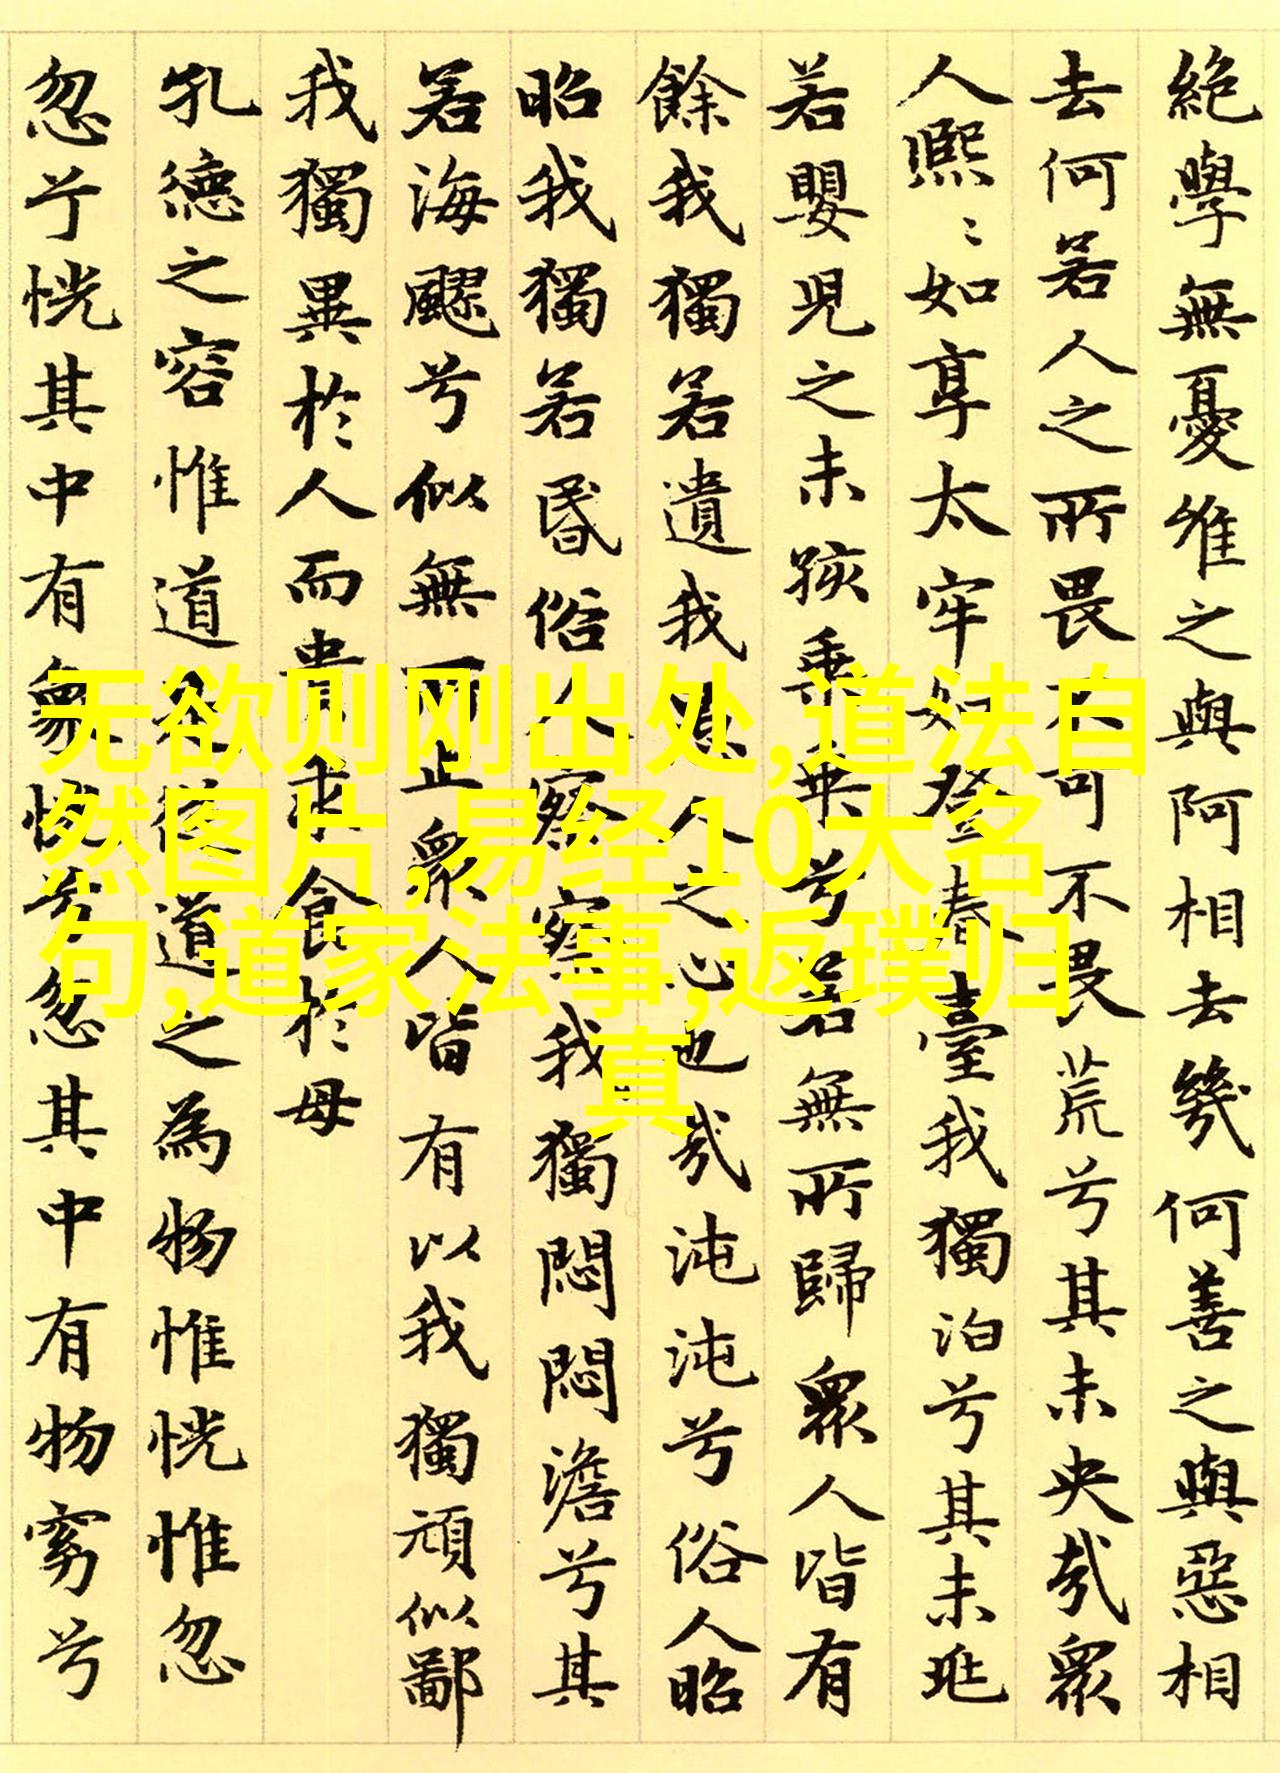 絕學無憂唯之與阿相去幾何善之與惡相
去何若人之所畏不可不畏荒兮其未央哉眾
人熙〻如享太牢如登春臺我獨泊兮其未兆
若嬰兒之未孩乘乘兮若無所歸眾人皆有
餘我獨若遺我愚人之心也哉沌沌兮俗人昭
昭我獨若昏俗人察察我獨悶悶澹兮其
若海飂兮似無所止眾人皆有以我獨頑似鄙
我獨異於人而貴求食於母
孔德之容惟道是從道之為物惟恍惟忽
忽兮恍其中有象恍兮忽其中有物窈兮
无欲则刚出处,道法自
然图片,易经10大名
句,道家法事,返璞归
真